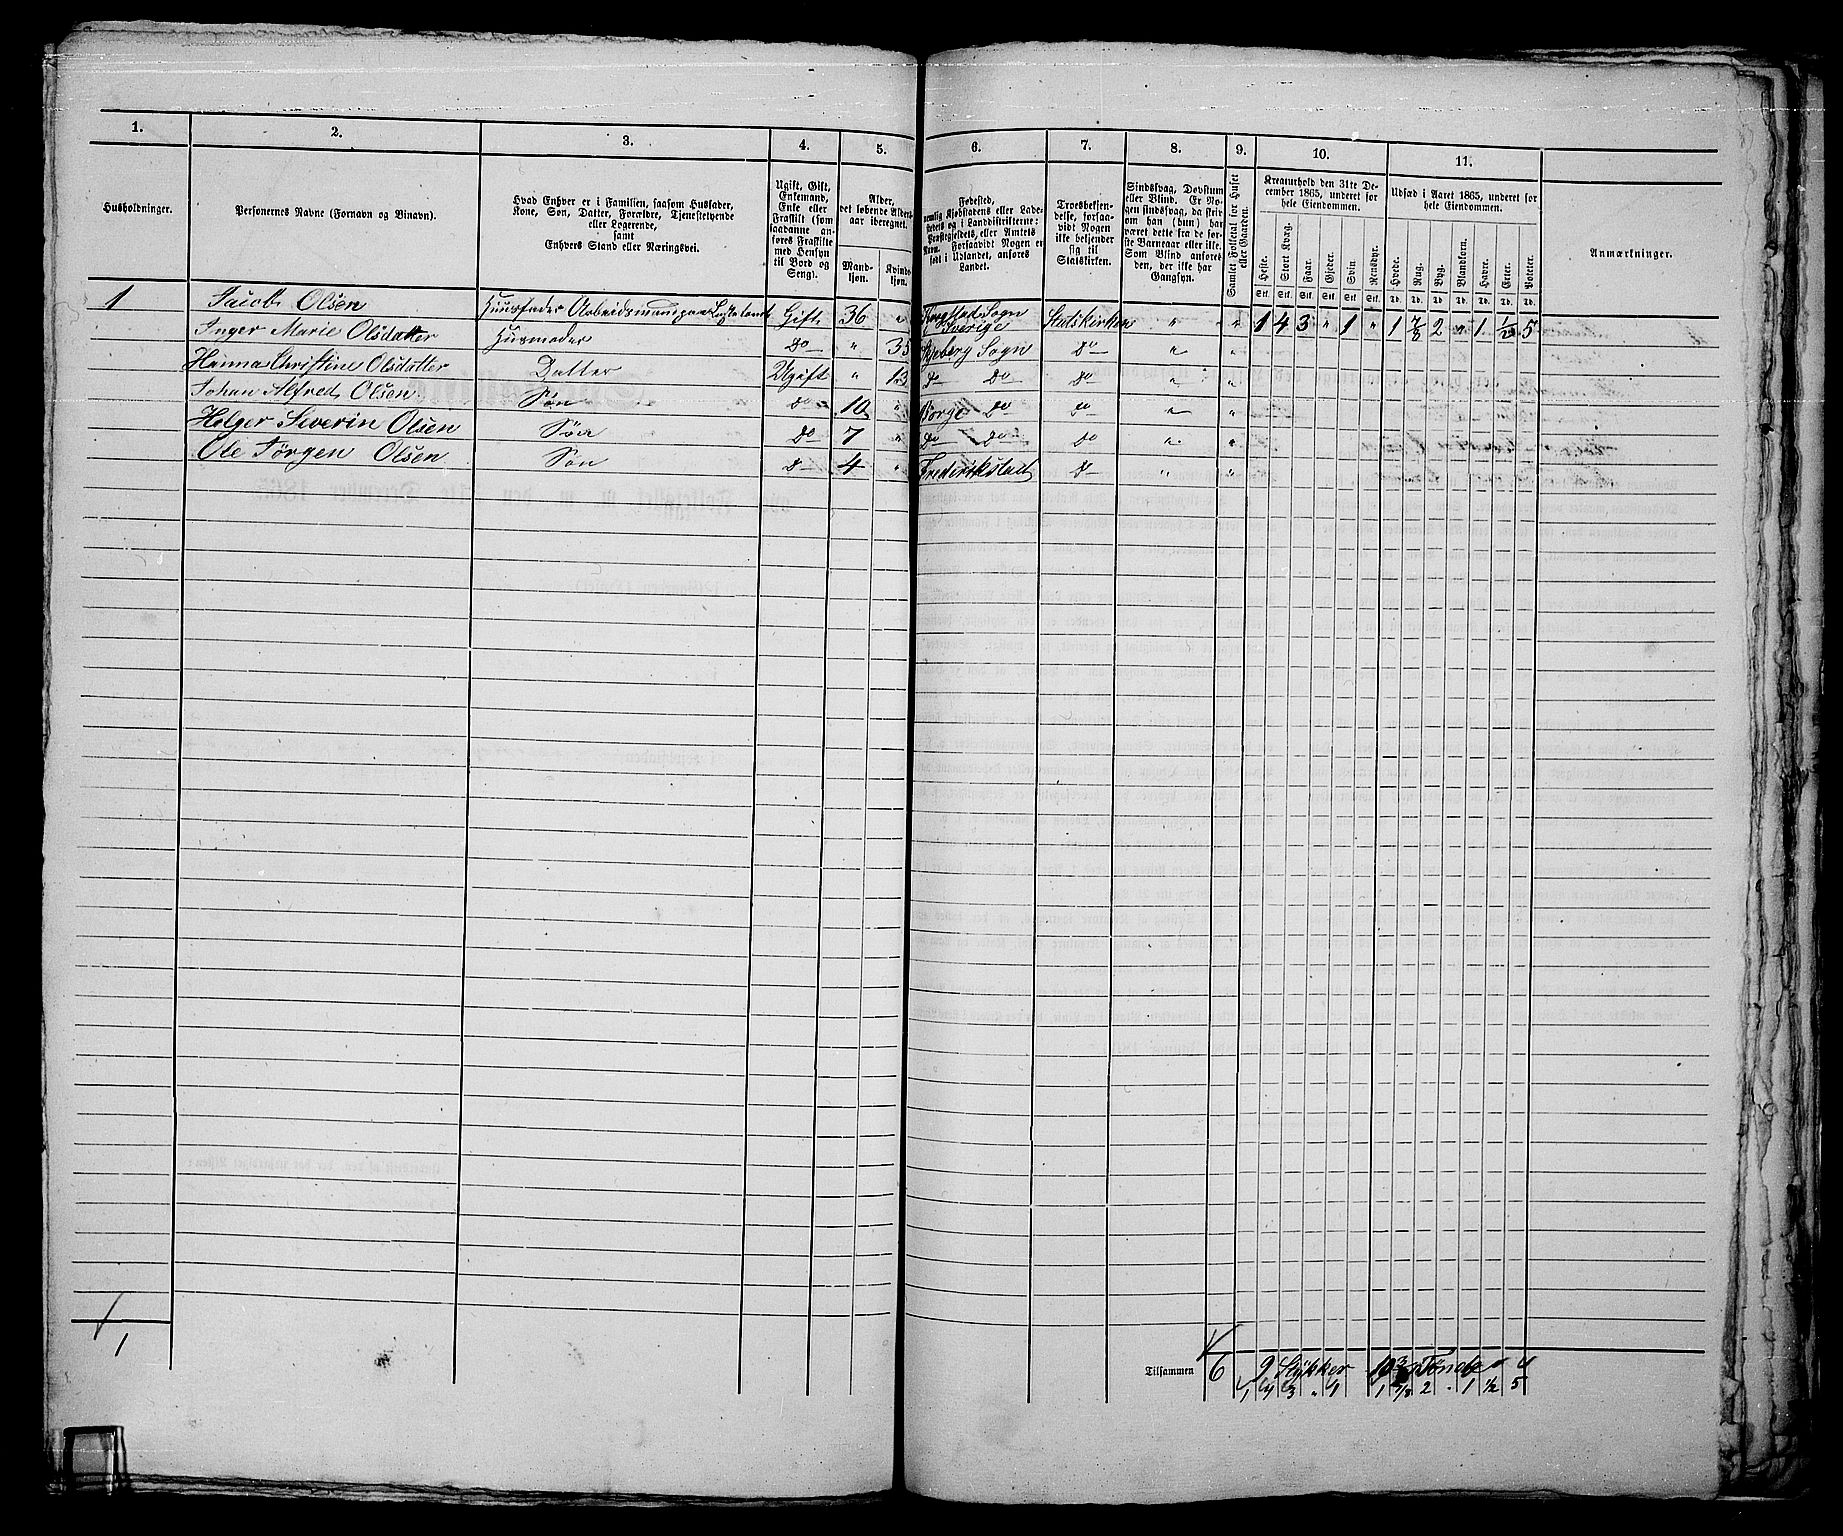 1.
2.
3.
4.
5.
6.
7.
8.
9.
10.
11.
Husholdninger.
Personernes Navne (Fornavn og Vinavn).
Hvad Enhver er i Familien, saasom Husfader,
Kone, Søn, Datter, Forældre, Tjenestetyende
eller Logerende,
samt
Enhvers Stand eller Næringsvei.
Ugift, Gift,
Enkemand,
Enke eller
Fraskilt (som
saadanne an-
føres Fraskilte
med Hensyn
til Bord og
Seng).
Alder,
det løbende Alders-
aar iberegnet.
Mand-
kjøn.
Kvinde-
kjøn.
Fødested,
nemlig Kjøbstadens eller Lade-
stedets og i Landdistrikterne:
Præstegjeldets, eller Amtets
Navn. Forsaavidt Nogen er
født i Udlandet, anføres
Landet.
Troesbekjen-
delse, forsaa-
vidt Nogen
ikke bekjender
sig til
Statskirken.
Sindssvag, Døvstum
eller Blind. Er No-
gen sindssvag, da skriv
om han (hun) har
været dette fra de før-
ste Barneaar eller ikke.
Som Blind anføres
den, der ikke har
Gangsyn.
Samlet Folketal for Huset
eller Gaarden.
Kreaturhold den 31te De-
cember 1865, underet for
hele Eiendommen.
Heste.
Stort Kvæg.
Faar.
Gjeder.
Svin.
Rensdyr.
Stk. Stk. Stk. Stk. Stk. Stk.
Udsæd i Aaret 1865, underet for
hele Eiendommen.
Hvede.
Rug.
Byg.
Blandkorn.
Havre.
Erter.
Poteter.
Td. Td. Td. Td. Td. Td. Td.
Anmærkninger.
1 Jacob Olsen Huusfader Arbeidsmand Gift 36 " Sogn Sverige Statskirken " " 1 4 3 " 1 " 1 7/8 2 " 1 1/2 5
Inger Marie Olsdatter Husmoder Do " 35 Skjeberg Sogn Do " "
Hanna Christine Olsdatter Datter Ugift " 13 Do Do Do " "
Johan Alfred Olsen Søn Do 10 " Borge Do Do " "
Holger Severin Olsen Søn Do 7 " Do Do Do " "
Ole Jørgen Olsen Søn Do 4 " Frederikstad Do " "
1
Tilsammen 6 9 Stykker 10 3/8 Tønder
1 4 3 " 1 1 7/8 2 " 1 1/2 5